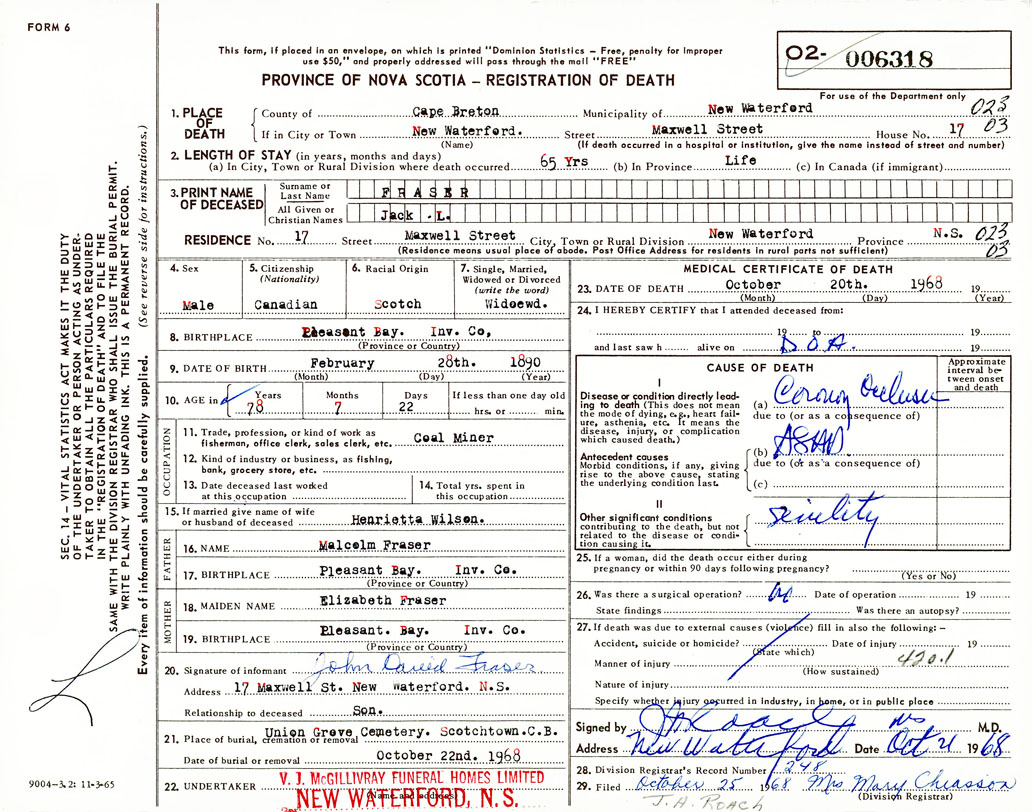 FORM 6
This form, if placed in an envelope, on which is printed "Dominion Statistics – Free, penalty for improper
use $50," and properly addressed will pass through the mail "FREE"
PROVINCE OF NOVA SCOTIA – REGISTRATION OF DEATH
O2- 006318
For use of the Department only
1. PLACE OF DEATH County of Cape Breton Municipality of New Waterford 023
If in City or Town New Waterford. Street Maxwell Street House No. 17 03
(Name) (If death occurred in a hospital or institution, give the name instead of street and number)
2. LENGTH OF STAY (in years, months and days)
(a) In City, Town or Rural Division where death occurred 65 Yrs (b) In Province Life (c) In Canada (if immigrant)
3. PRINT NAME OF DECEASED Surname or Last Name FRASER
All Given or Christian Names Jack .L.
RESIDENCE No. 17 Street Maxwell Street City, Town or Rural Division New Waterford Province N.S. 023
(Residence means usual place of abode. Post Office Address for residents in rural parts not sufficient) 03
4. Sex Male
5. Citizenship (Nationality) Canadian
6. Racial Origin Scotch
7. Single, Married, Widowed or Divorced (write the word) Widoewd.
8. BIRTHPLACE Pleasant Bay. Inv. Co,
(Province or Country)
9. DATE OF BIRTH February 28th. 1890
(Month) (Day) (Year)
10. AGE in Years 78 Months 7 Days 22 If less than one day old hrs. or min.
OCCUPATION
11. Trade, profession, or kind of work as fisherman, office clerk, sales clerk, etc. Coal Miner
12. Kind of industry or business, as fishing, bank, grocery store, etc.
13. Date deceased last worked at this occupation
14. Total yrs. spent in this occupation
15. If married give name of wife or husband of deceased Henrietta Wilson.
FATHER
16. NAME Malcolm Fraser
17. BIRTHPLACE Pleasant Bay. Inv. Co.
(Province or Country)
MOTHER
18. MAIDEN NAME Elizabeth Fraser
19. BIRTHPLACE Pleasant. Bay. Inv. Co.
(Province or Country)
20. Signature of informant John David Fraser
Address 17 Maxwell St. New Waterford. N.S.
Relationship to deceased Son.
21. Place of burial, cremation or removal Union Grove Cemetery. Scotchtown.C.B.
Date of burial or removal October 22nd. 1968
22. UNDERTAKER V. J. McGILLIVRAY FUNERAL HOMES LIMITED
(Name and address)
NEW WATERFORD, N.S.
MEDICAL CERTIFICATE OF DEATH
23. DATE OF DEATH October 20th. 1968 19
(Month) (Day) (Year)
24. I HEREBY CERTIFY that I attended deceased from:
19 to 19
and last saw h alive on D.O.A. 19
CAUSE OF DEATH
Approximate interval between onset and death
I
Disease or condition directly leading to death (This does not mean the mode of dying, e.g., heart failure, asthenia, etc. It means the disease, injury, or complication which caused death.)
(a) Coronary Occlusion
due to (or as a consequence of)
Antecedent causes
Morbid conditions, if any, giving rise to the above cause, stating the underlying condition last.
(b) ASHD
due to (or as a consequence of)
(c)
II
Other significant conditions contributing to the death, but not related to the disease or condition causing it. senility
25. If a woman, did the death occur either during
pregnancy or within 90 days following pregnancy?
(Yes or No)
26. Was there a surgical operation? no Date of operation 19
State findings Was there an autopsy?
27. If death was due to external causes (violence) fill in also the following: –
Accident, suicide or homicide? Date of injury 19
(State which) 420.1
Manner of injury
(How sustained)
Nature of injury
Specify whether injury occurred in industry, in home, or in public place
Signed by J A Roach M.D.
Address New Waterford Date Oct 21 1968
28. Division Registrar's Record Number 248
29. Filed October 25 1968 Mrs Mary Chiasson
(Division Registrar)
J. A. ROACH
SEC. 14 – VITAL STATISTICS ACT MAKES IT THE DUTY
OF THE UNDERTAKER OR PERSON ACTING AS UNDER-
TAKER TO OBTAIN ALL THE PARTICULARS REQUIRED
IN THE "REGISTRATION OF DEATH" AND TO FILE THE
SAME WITH THE DIVISION REGISTRAR WHO SHALL ISSUE THE BURIAL PERMIT.
WRITE PLAINLY WITH UNFADING INK. THIS IS A PERMANENT RECORD.
Every item of information should be carefully supplied. (See reverse side for instructions.)
9004-3.2: 11-3-65